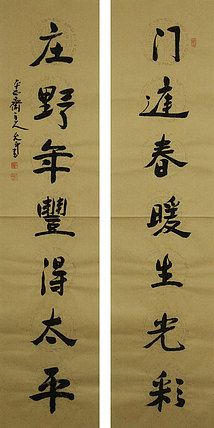 门迋春暖生光彩
庄野年豐得太平